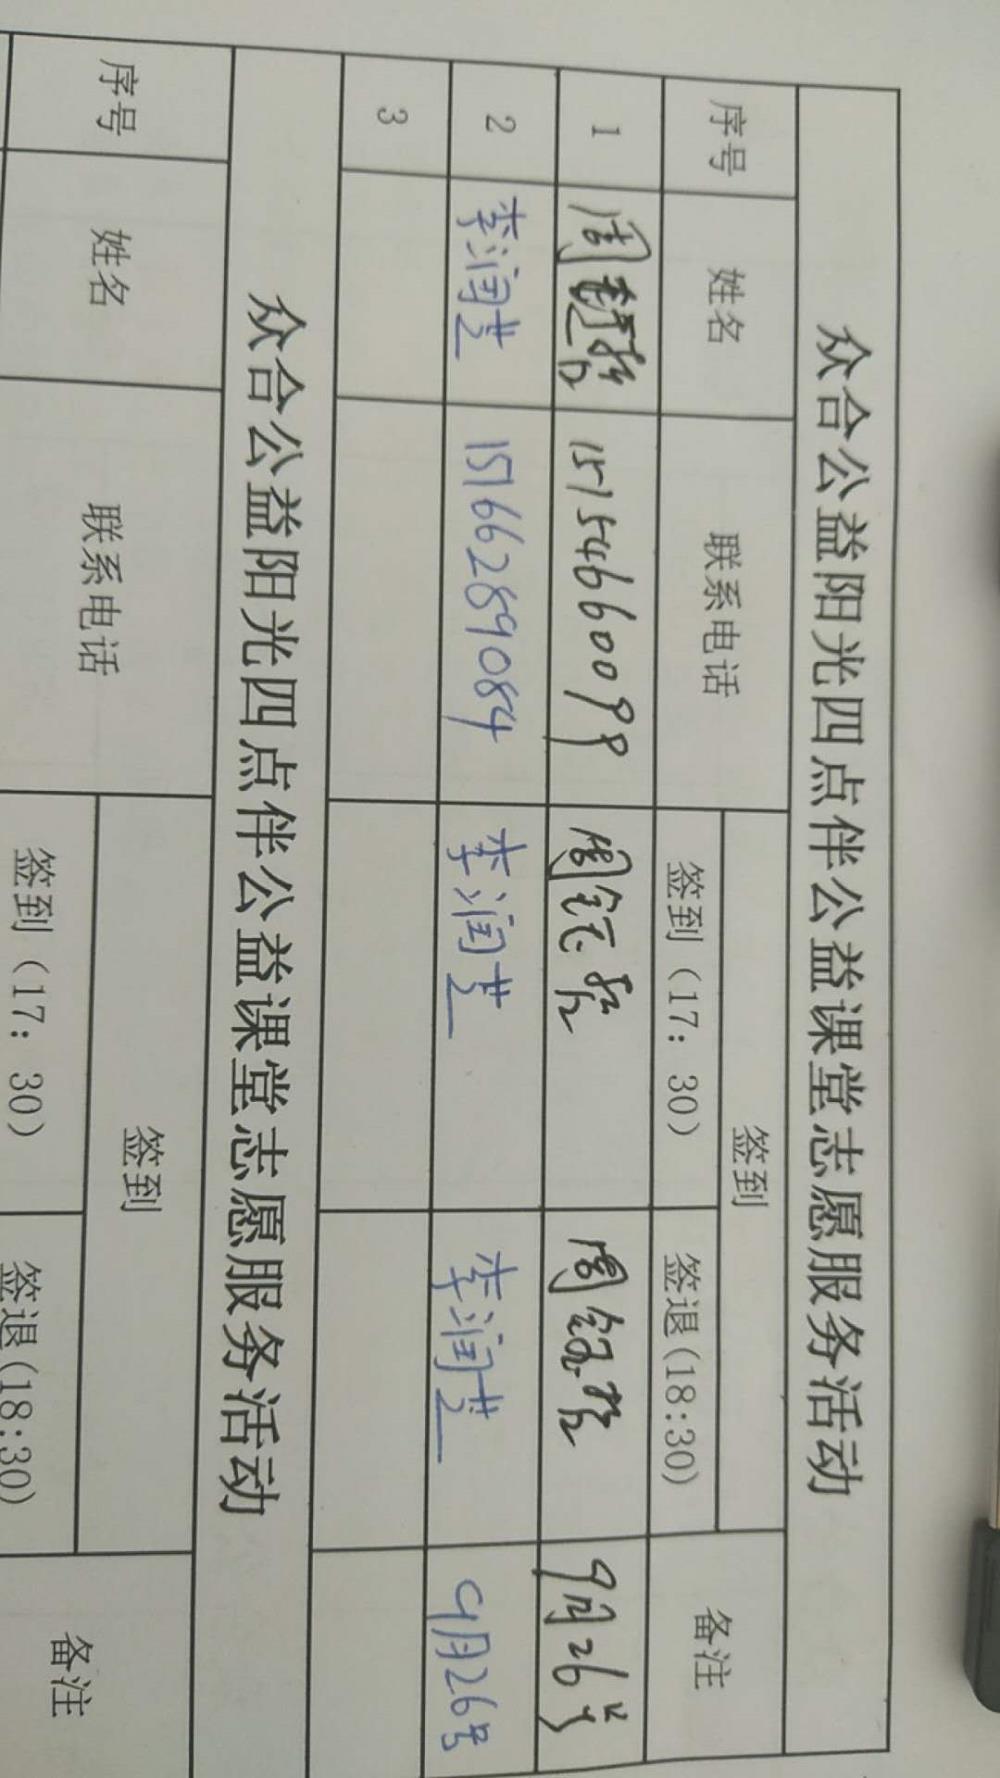 众合公益阳光四点伴公益课堂志愿服务活动
序号 姓名 联系电话 签到 备注
签到（17：30） 签退(18:30)
1 周 15154660099 周 周 9月26号
2 李润芝 15166289084 李润芝 李润芝 9月26号
3
众合公益阳光四点伴公益课堂志愿服务活动
序号 姓名 联系电话 签到 备注
签到（17：30） 签退(18:30)